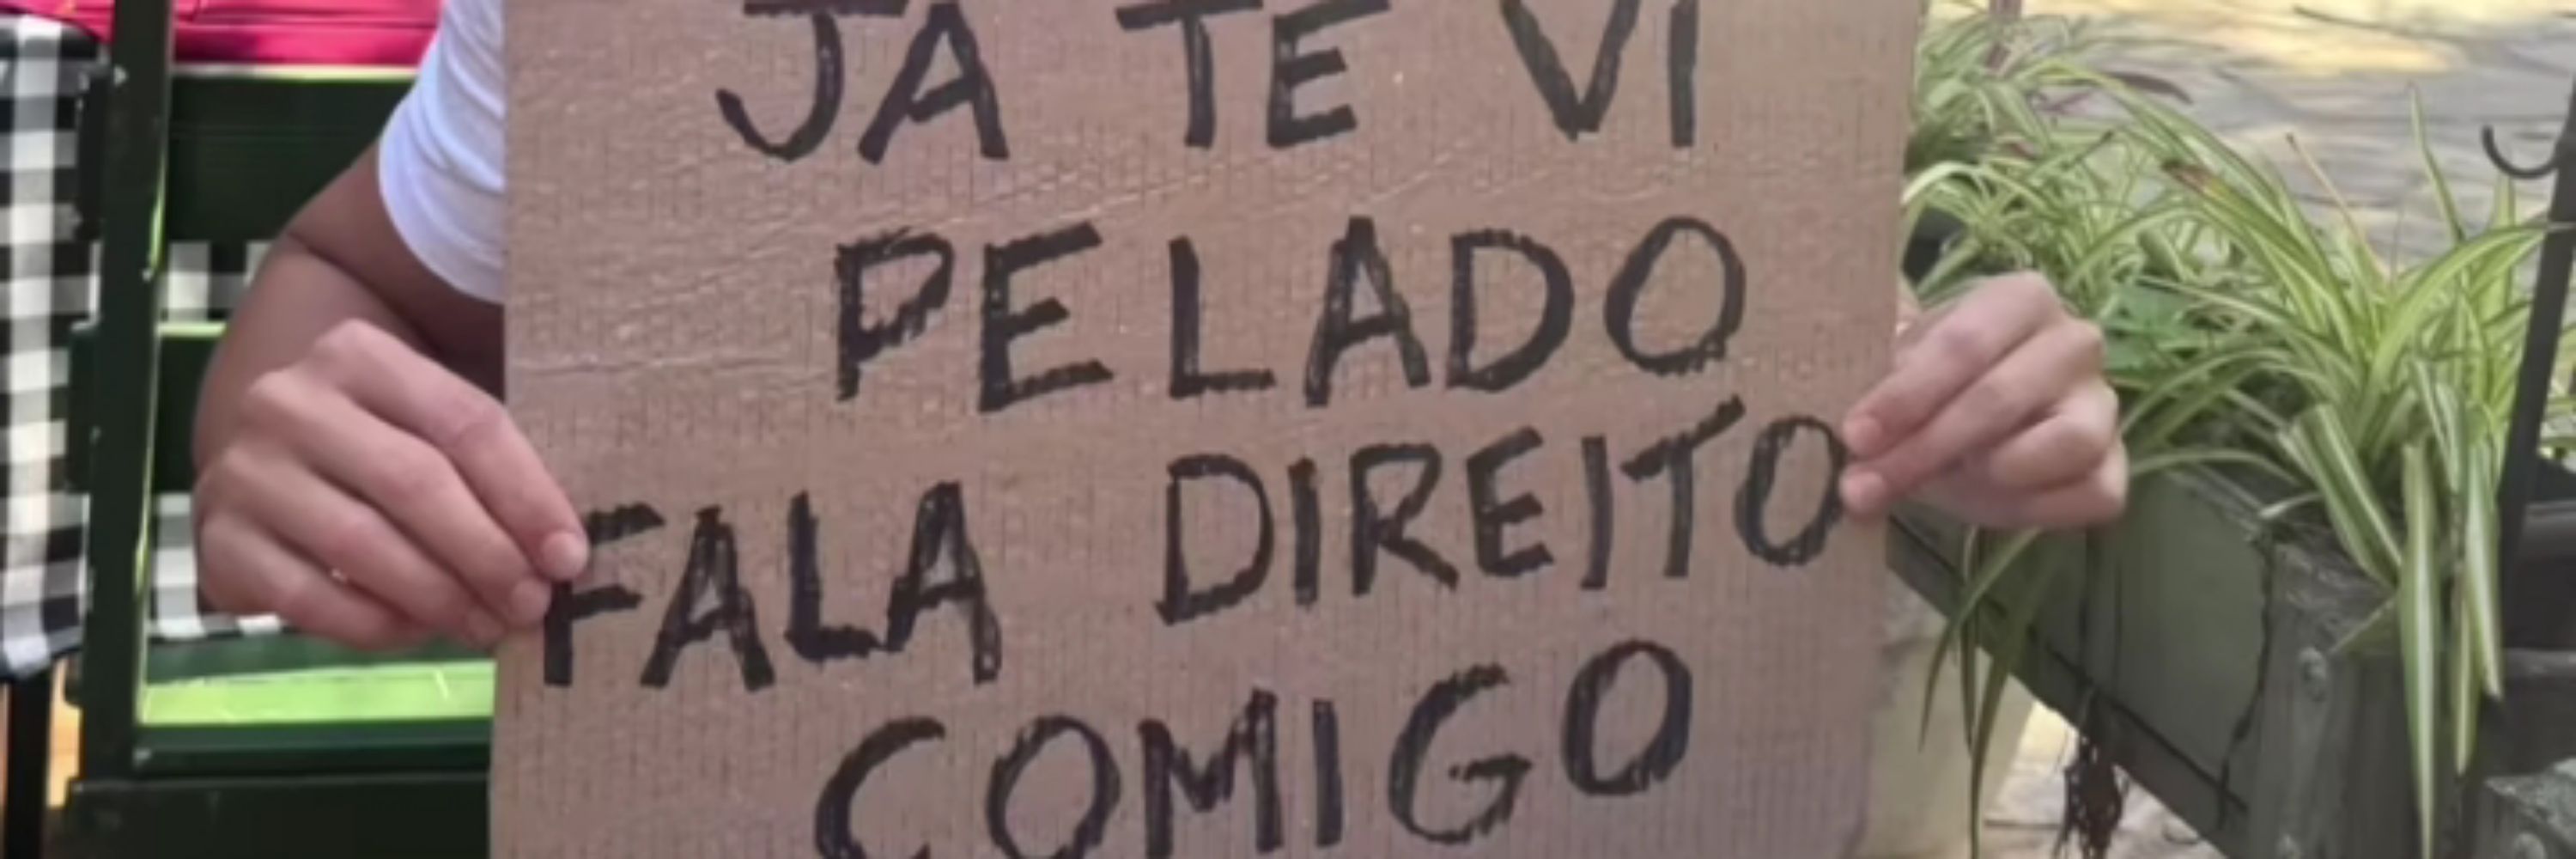 JA TE VI
PELADO
FALA DIREITO
COMIGO